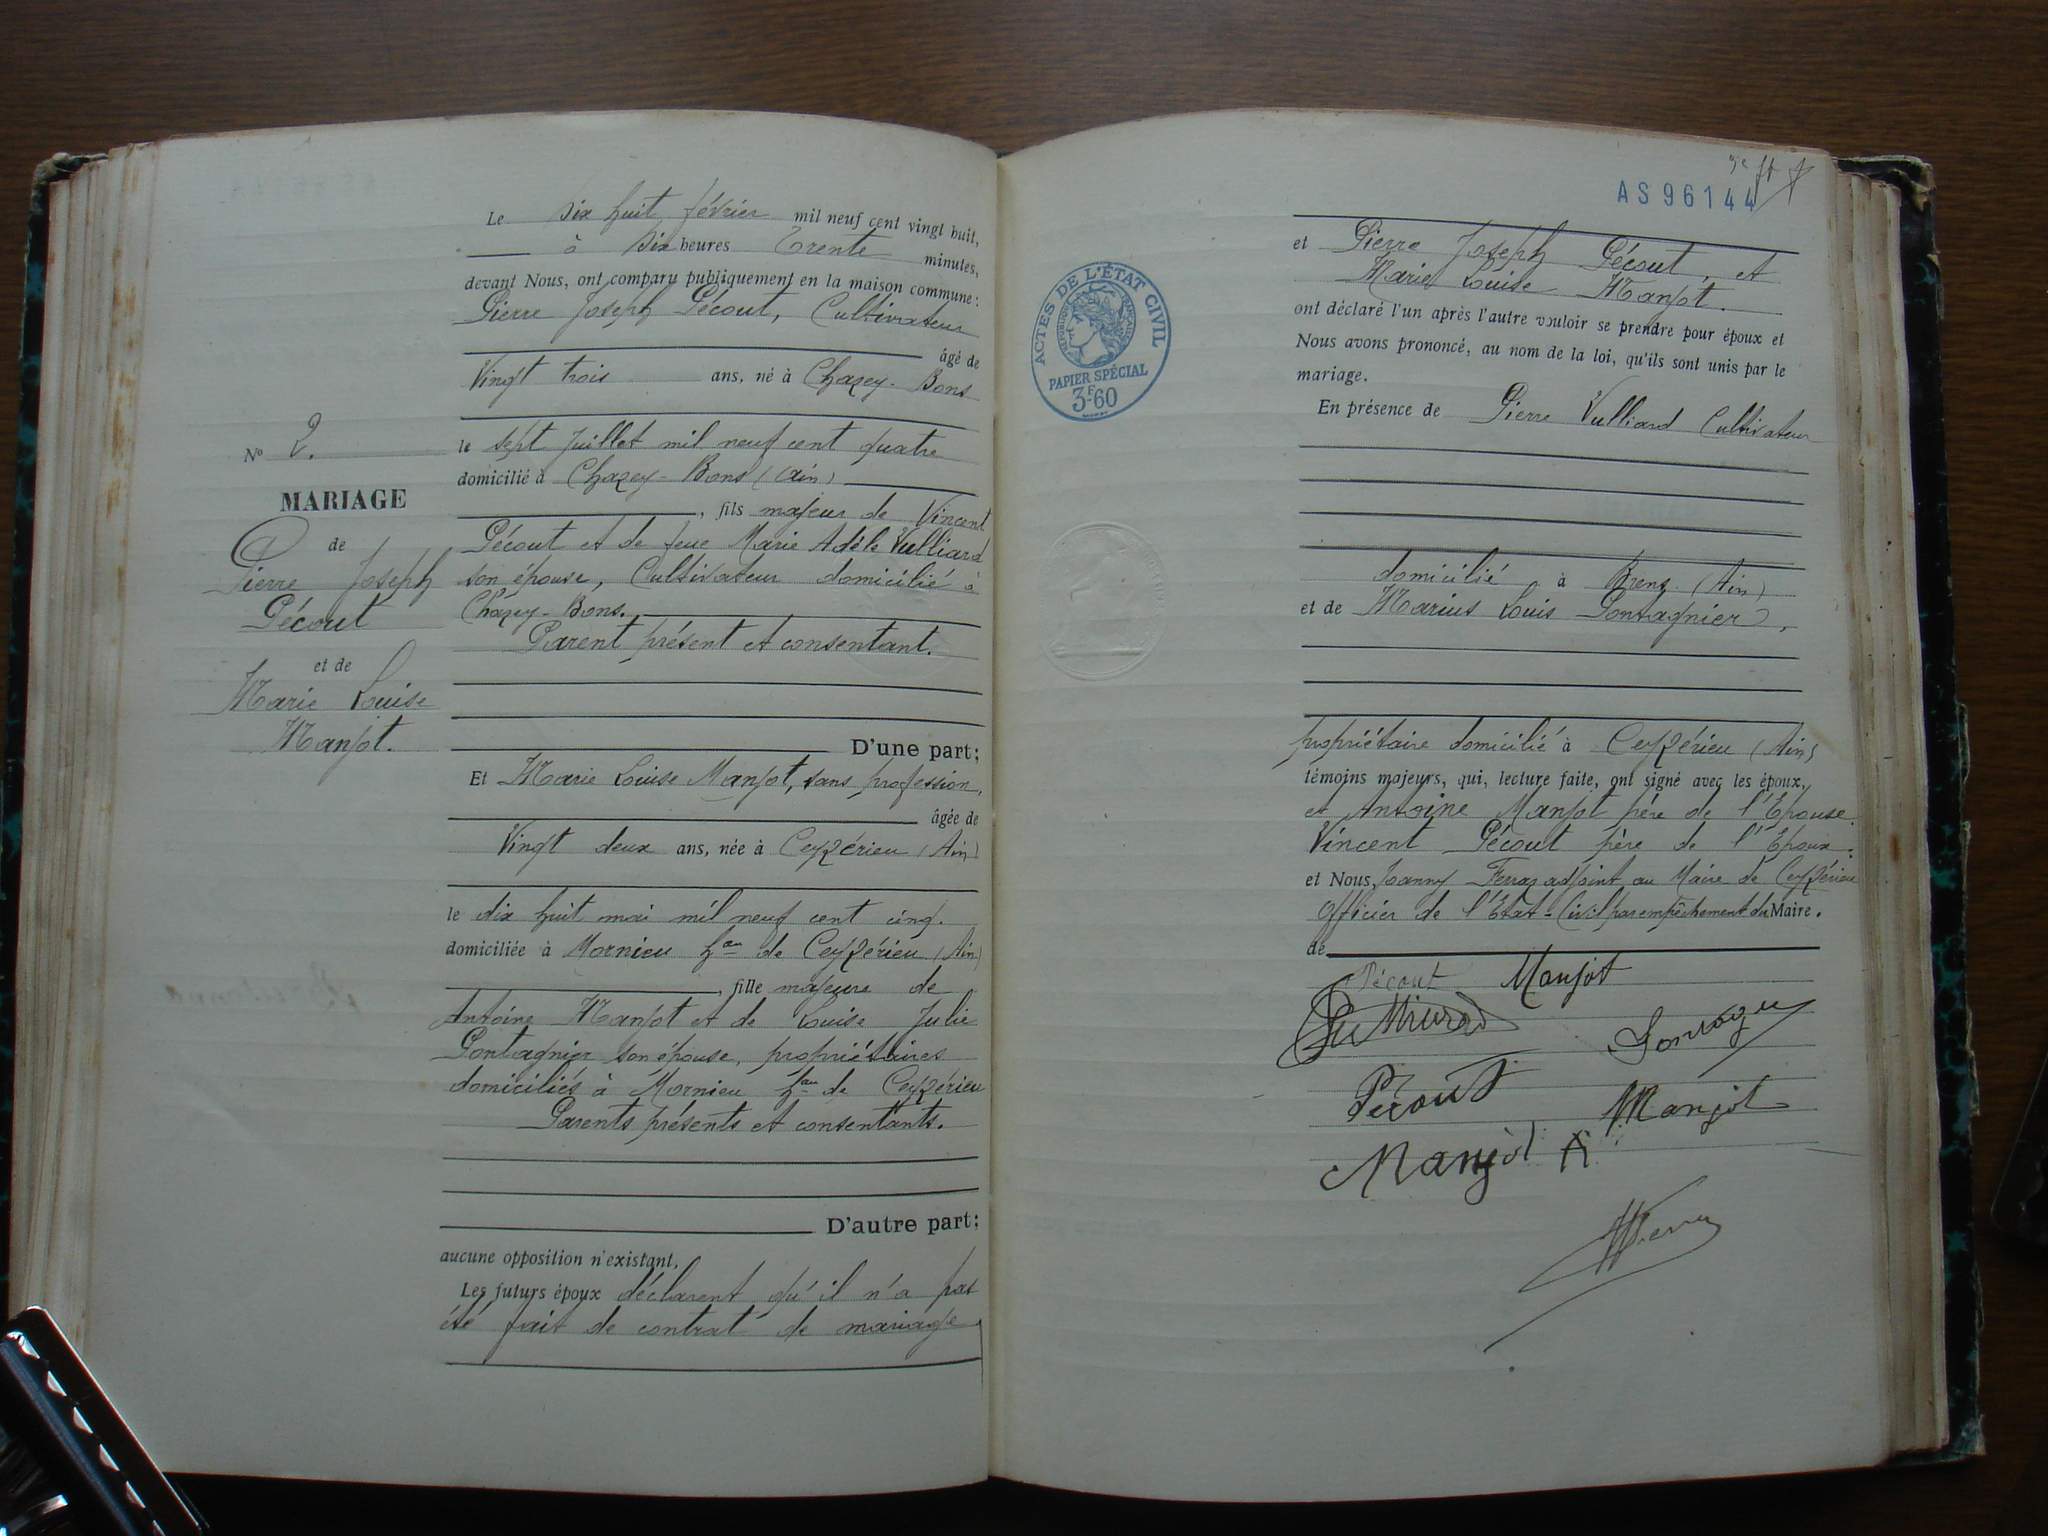 Le dix huit février mil neuf cent vingt huit,
à dix heures Trente minutes,
devant Nous, ont comparu publiquement en la maison commune :
Pierre Joseph Pécout, Cultivateur
âgé de
Vingt trois ans, né à Chazey-Bons
le sept juillet mil neuf cent quatre
domicilié à Chazey-Bons (Ain)
, fils majeur de Vincent
Pécout et de feue Marie Adèle Vulliard
son épouse, Cultivateur domicilié à
Chazey-Bons.
Parent présent et consentant.
D'une part;
Et Marie Louise Manjot, sans profession,
âgée de
Vingt deux ans, née à Ceyzérieu (Ain)
le dix huit mai mil neuf cent cinq.
domiciliée à Mornieu hau de Ceyzérieu (Ain)
, fille majeure de
Antoine Manjot et de Louise Julie
Pontagnier son épouse, propriétaires
domiciliés à Mornieu hau de Ceyzérieu
Parents présents et consentants.
D'autre part;
aucune opposition n'existant,
Les futurs époux déclarent qu'il n'a pas
été fait de contrat de mariage
No 2.
MARIAGE
de
Pierre Joseph
Pécout
et de
Marie Louise
Manjot.
AS96144
ACTES DE L'ÉTAT CIVIL
RÉPUBLIQUE FRANÇAISE
PAPIER SPÉCIAL
3F60
et Pierre Joseph Pécout, et
Marie Louise Manjot.
ont déclaré l'un après l'autre vouloir se prendre pour époux et
Nous avons prononcé, au nom de la loi, qu'ils sont unis par le
mariage.
En présence de Pierre Vulliard Cultivateur
domicilié à Brens (Ain)
et de Marius Louis Pontagnier,
propriétaire domicilié à Ceyzérieu (Ain)
témoins majeurs, qui, lecture faite, ont signé avec les époux,
et Antoine Manjot père de l'Epouse.
Vincent Pécout père de l'Epoux.
et Nous, Joanny Ferraz adjoint au Maire de Ceyzérieu
Officier de l'Etat-Civil par empêchement du Maire.
de
Pécout Manjot
Pécout Manjot
Manjot A